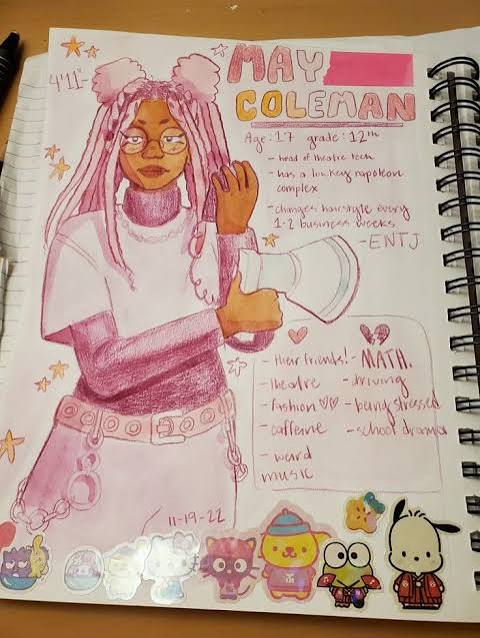 4'11"-
MAY
COLEMAN
Age: 17 grade: 12th
- head of theatre tech
- has a lowkey napoleon
complex
- changes hairstyle every
1-2 business weeks
- ENTJ
- their friends!
- theatre
- fashion ♡♡
- caffeine
- weird
music
- MATH.
- driving
- being stressed
- school drama
11-19-22